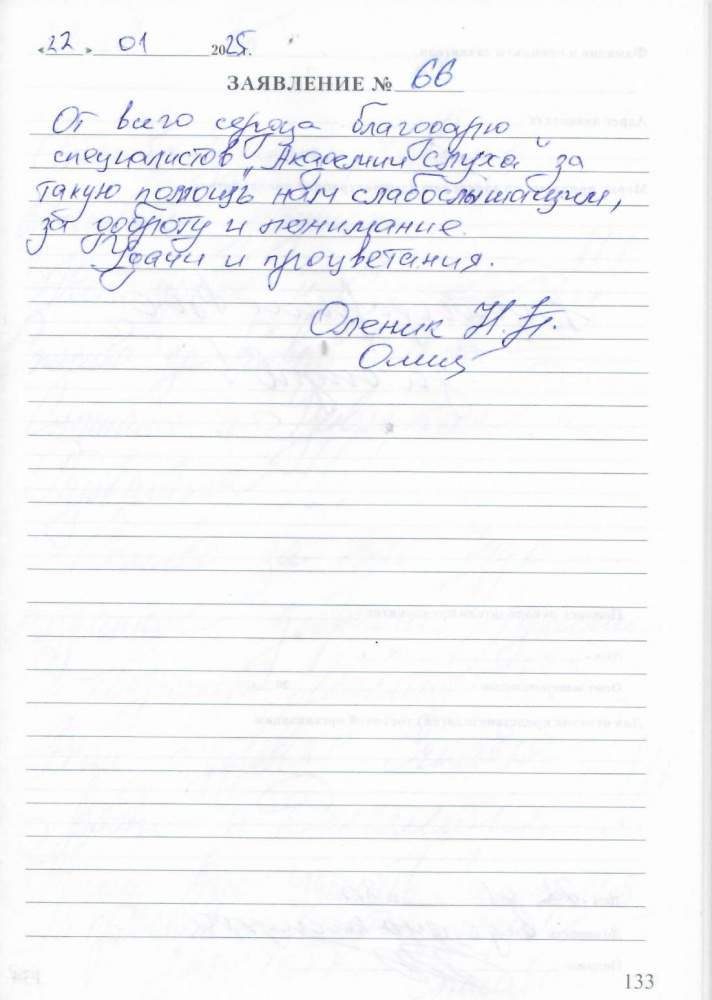 «22» 01 2025г.
ЗАЯВЛЕНИЕ № 66
От всего сердца благодарю
специалистов „Академии слуха" за
такую помощь нам слабослышащим,
за доброту и понимание.
Удачи и процветания.
Оленик Н.П.
133